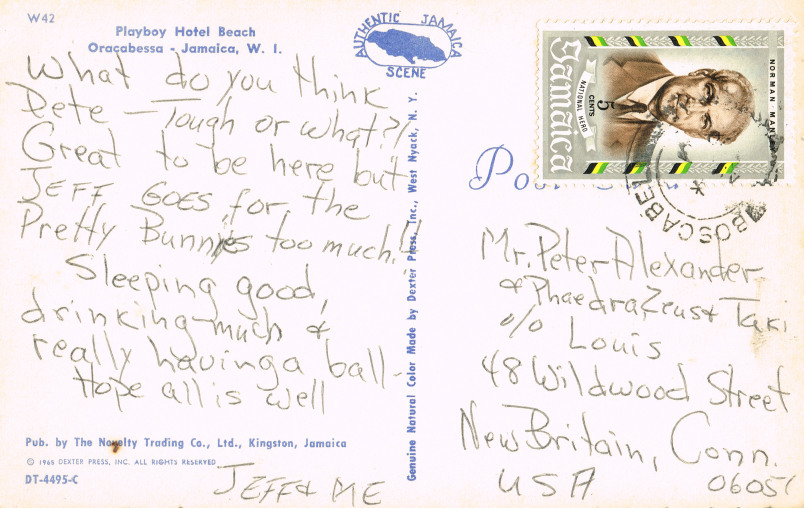 W42
Playboy Hotel Beach
Oracabessa - Jamaica, W. I.
AUTHENTIC JAMAICA
SCENE
What do you think
Pete - Tough or what?!
Great to be here but
JEFF GOES for the
Pretty Bunnies too much!!
Sleeping good,
drinking much &
really having a ball -
Hope all is well
JEFF & ME
Pub. by The Novelty Trading Co., Ltd., Kingston, Jamaica
© 1965 DEXTER PRESS, INC. ALL RIGHTS RESERVED
DT-4495-C
Genuine Natural Color Made by Dexter Press, Inc., West Nyack, N. Y.
Jamaica
NATIONAL HERO
5
CENTS
NORMAN
Mr. Peter Alexander
& Phaedra Zeus & Taki
c/o Louis
48 Wildwood Street
New Britain, Conn.
USA 06051